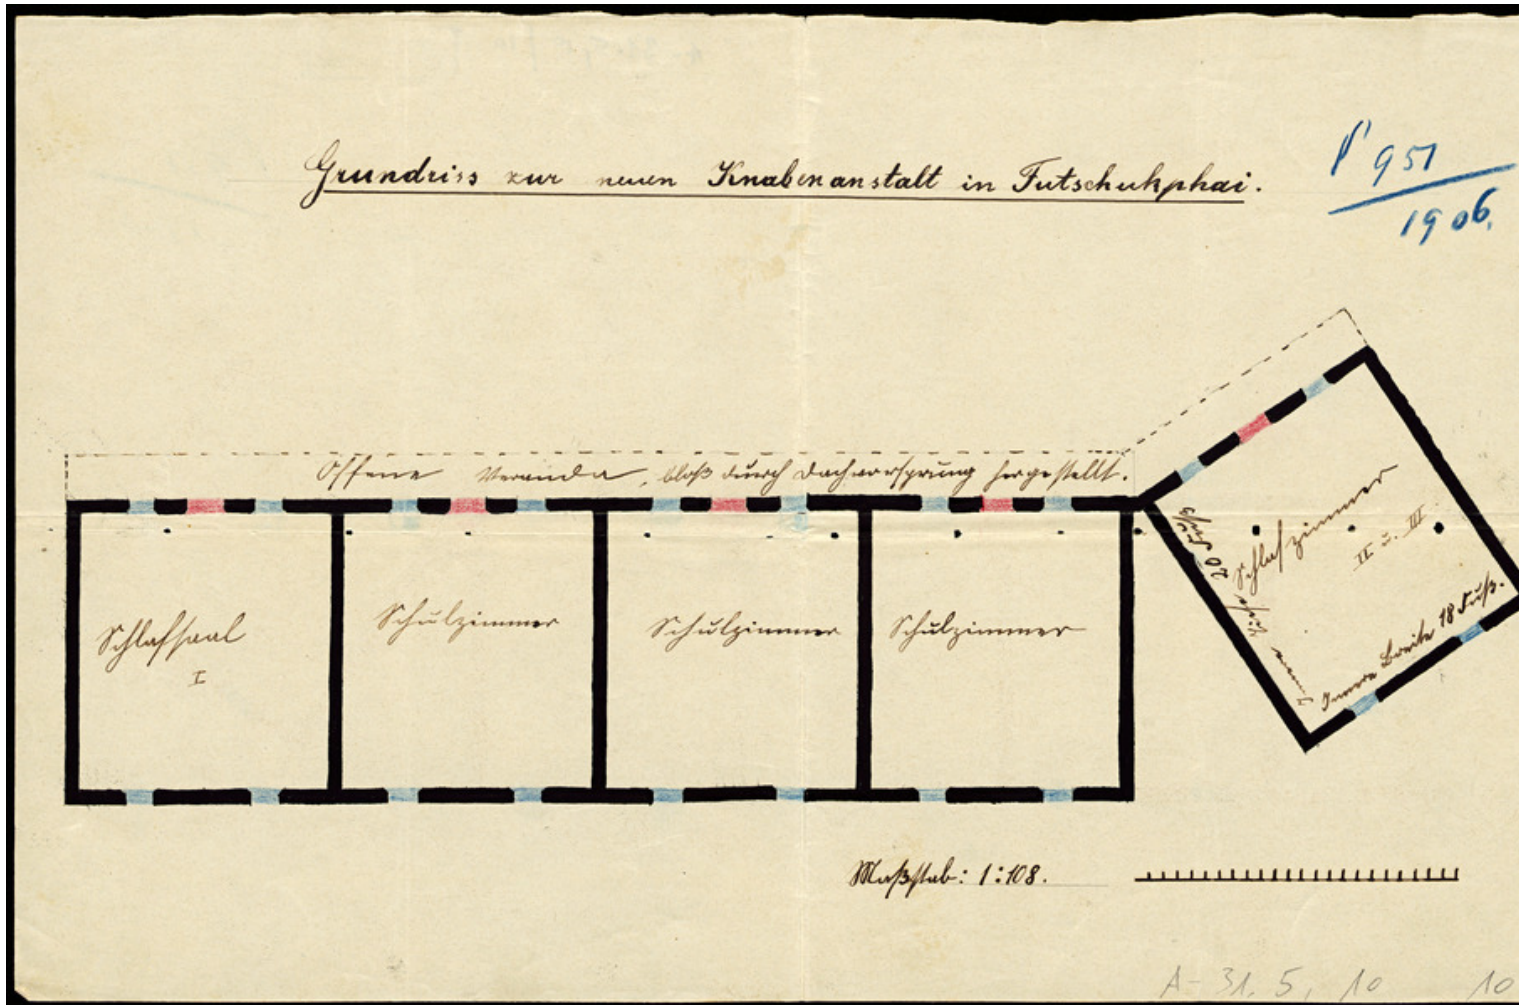 Grundriss zur neuen Knabenanstalt in Futschukphai.
951
1906.
Offene Veranda, bloß durch Dachvorsprung hergestellt.
Schlafsaal
I
Schulzimmer
Schulzimmer
Schulzimmer
Schlafzimmer
II u. III
Innere Tiefe 20 Fuß
Innere Breite 18 Fuß.
Maßstab: 1:108.
A-31.5,10 10